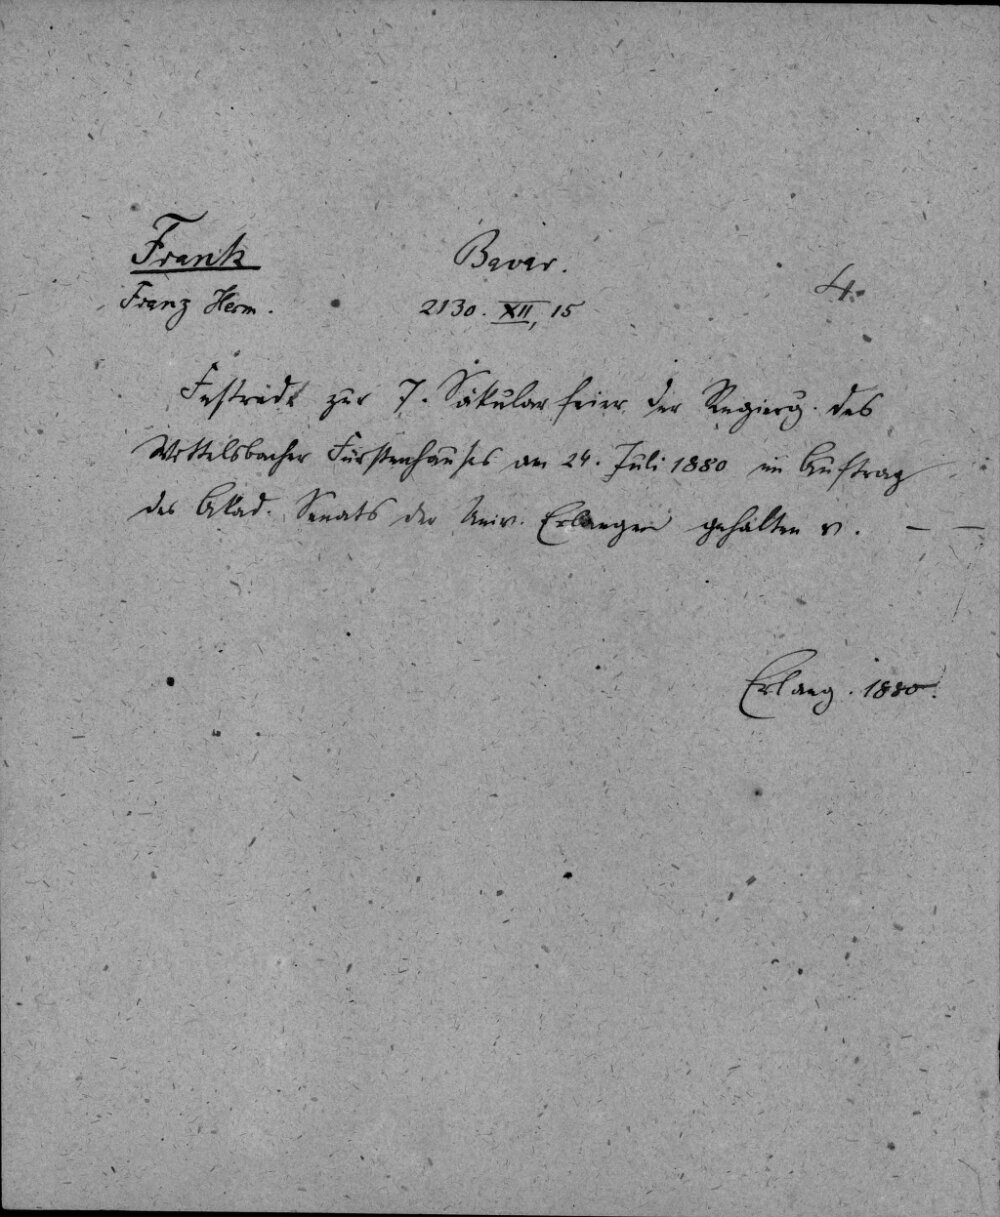 Frank Bavar. 4.
Franz Herm. 2130. XII, 15
Festrede zur 7. Säkularfeier der Regierg. des
Wittelsbacher Fürstenhauses am 24. Juli 1880 im Auftrag
des Akad. Senats der Univ. Erlangen gehalten v. — —
Erlang. 1880.